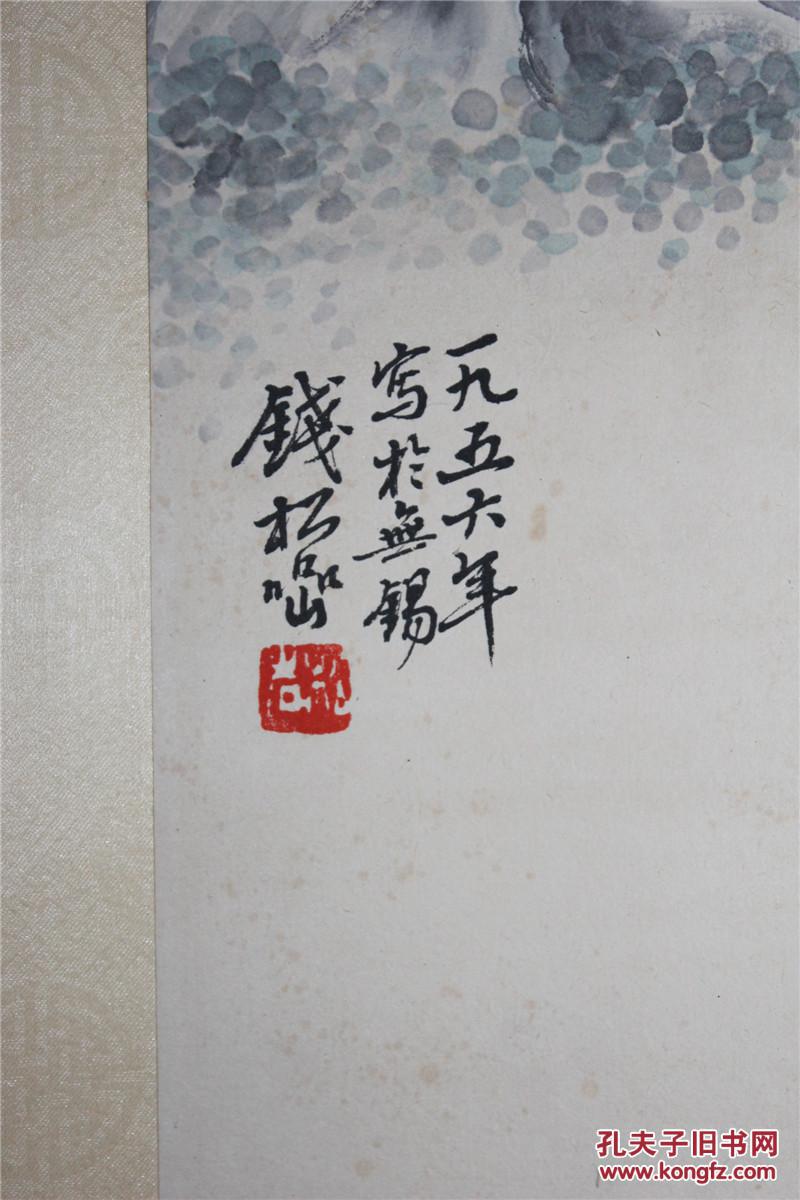 一九五六年
寫於無錫
錢松嵒
孔夫子旧书网
www.kongfz.com